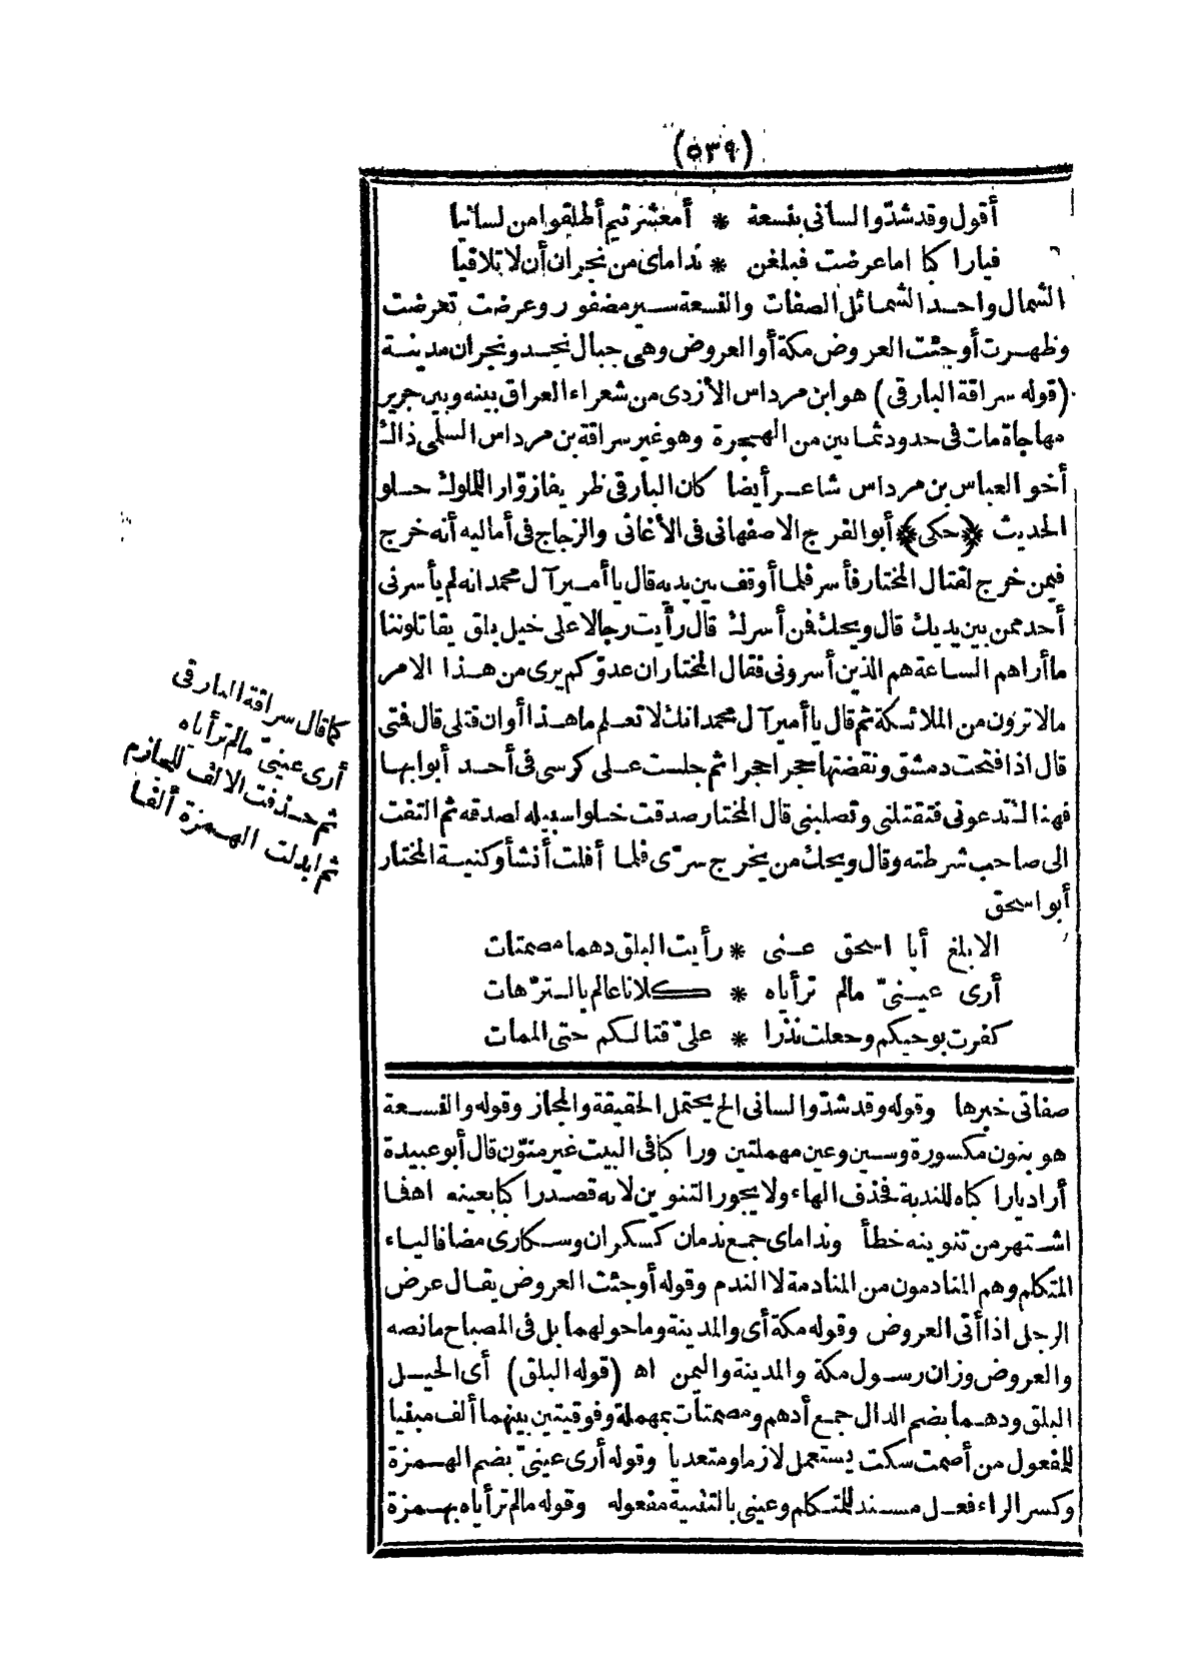 (٥٣٩)
أقول وقد شدّوا لسانى بنسعة * أمعشر تيم أطلقوا من لسانيا
فيارا كبا اما عرضت فبلغن * نداماى من نجران أن لا تلاقيا
الشمال واحد الشمائل الصفات والنسعة سير مضفور وعرضت تعرضت
وظهرت أو جئت العروض مكة أو العروض وهى جبال نجد ونجران مدينة
(قوله سراقة البارقى) هو ابن مرداس الأزدى من شعراء العراق بينه وبين جرير
مهاجاة مات فى حدود ثمانين من الهجرة وهو غير سراقة بن مرداس السلمى ذاك
أخو العباس بن مرداس شاعر أيضا كان البارقى ظريفا زوّار الملوك حلو
الحديث ﴿حكى﴾ أبو الفرج الاصفهانى فى الأغانى والزجاج فى أماليه أنه خرج
فيمن خرج لقتال المختار فأسر فلما أوقف بين يديه قال يا أمير آل محمد انه لم يأسرنى
أحد ممن بين يديك قال ويحك فمن أسرك قال رأيت رجالا على خيل بلق يقاتلوننا
ما أراهم الساعة هم الذين أسرونى فقال المختار ان عدوّكم يرى من هذا الامر
مالا ترون من الملائكة ثم قال يا أمير آل محمد انك لا تعلم ما هذا أوان قتلى قال فمتى
قال اذا فتحت دمشق ونقضتها حجرا حجرا ثم جلست على كرسى فى أحد أبوابها
فهناك تدعونى فتقتلنى وتصلبنى قال المختار صدقت خلوا سبيله لصدقه ثم التفت
الى صاحب شرطته وقال ويحك من يخرج سرّى فلما أفلت أنشأ وكنية المختار
أبو اسحق
الا بلغ أبا اسحق عنى * رأيت البلق دهما مصمتات
أرى عينىّ مالم ترأياه * كلانا عالم بالترّهات
كفرت بوحيكم وجعلت نذرا * علىّ قتالكم حتى الممات
كما قال سراقة البارقى
أرى عينىّ مالم ترأياه
ثم حذفت الالف للجازم
ثم ابدلت الهمزة ألفا
صفاتى خبرها وقوله وقد شدّوا لسانى الخ يحتمل الحقيقة والمجاز وقوله والنسعة
هو بنون مكسورة وسين وعين مهملتين ورا كبا فى البيت غير منوّن قال أبو عبيدة
أراد يارا كباه للندبة فحذف الهاء ولا يجوز التنوين لانه قصد را كبا بعينه اهفا
اشتهر من تنوينه خطأ ونداماى جمع ندمان كسكران وسكارى مضافا لياء
المتكلم وهم المنادمون من المنادمة لا الندم وقوله أو جئت العروض يقال عرض
الرجل اذا أتى العروض وقوله مكة أى والمدينة وما حولهما بل فى المصباح ما نصه
والعروض وزان رسول مكة والمدينة واليمن اه (قوله البلق) أى الخيل
البلق ودهما بضم الدال جمع أدهم ومصمتات بمهملة وفوقيتين بينهما ألف مبنيا
للمفعول من أصمت سكت يستعمل لازما ومتعديا وقوله أرى عينىّ بضم الهمزة
وكسر الراء فعل مسند للمتكلم وعينى بالتثنية مفعوله وقوله مالم ترأياه بهمزة